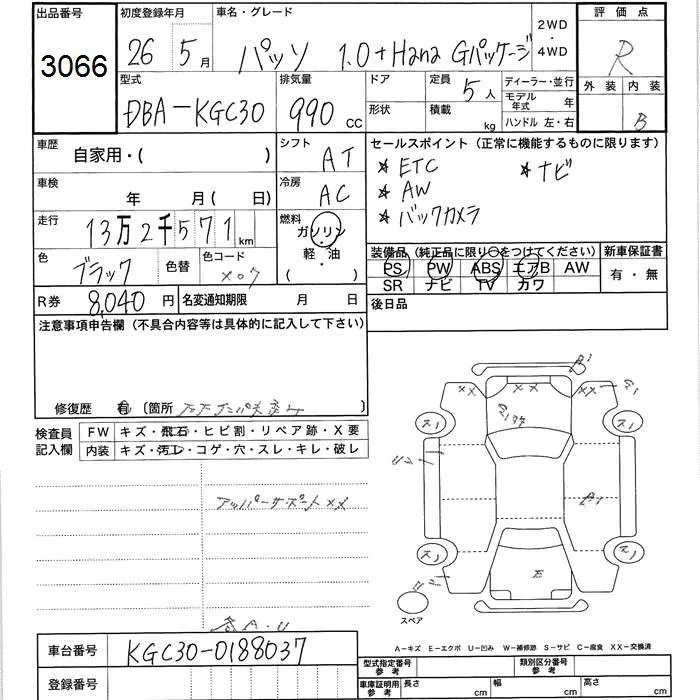 出品番号
3066
初度登録年月
26 5月
車名・グレード
パッソ 1.0+Hana Gパッケージ
2WD
・
4WD
評価点
R
外装 内装
B
型式
DBA-KGC30
排気量
990 cc
ドア
形状
定員
5人
積載
kg
ディーラー・並行
モデル年式 年
ハンドル 左・右
車歴
自家用・( )
シフト
AT
セールスポイント (正常に機能するものに限ります)
★ ETC ★ ナビ
★ AW
★ バックカメラ
車検
年 月 (日)
冷房
AC
走行
13万2千571km
燃料
ガソリン
・
軽・油
( )
色
ブラック
色替
色コード
X07
装備品 (純正品に限り○をつけてください)
PS PW ABS エアB AW
SR ナビ TV カワ
新車保証書
有・無
R券
8,040円
名変通知期限 月 日
後日品
注意事項申告欄 (不具合内容等は具体的に記入して下さい)
修復歴 有 〔箇所 〕
検査員
記入欄
FW キズ・飛石・ヒビ割・リペア跡・X要
内装 キズ・汚レ・コゲ・穴・スレ・キレ・破レ
アッパーサポートXX
各A・U
XX XX
A1
E
スペア
A-キズ E-エクボ U-凹み W-補修跡 S-サビ C-腐食 XX-交換済
車台番号
KGC30-0188037
登録番号
型式指定番号
参考
類別区分番号
参考
車庫証明用
参考
長さ cm
幅 cm
高さ cm